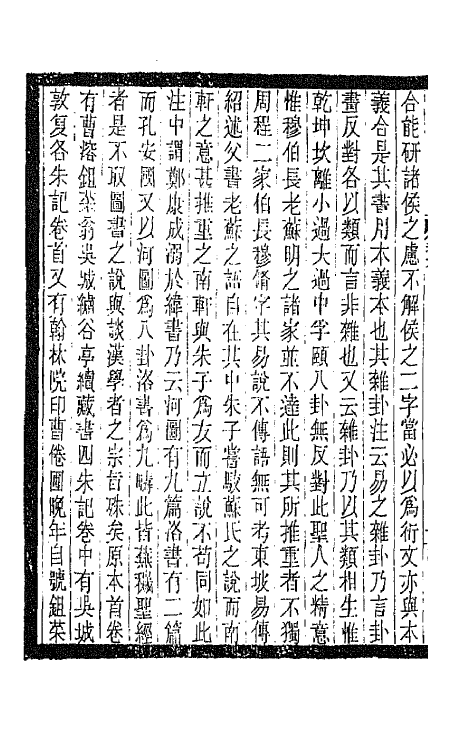 合能研諸侯之慮不解侯之二字當必以爲衍文亦與本
義合是其書用本義本也其雜卦注云易之雜卦乃言卦
畫反對各以類而言非雜也又云雜卦乃以其類相生惟
乾坤坎離小過大過中孚頤八卦無反對此聖人之精意
惟穆伯長老蘇明之諸家並不達此則其所推重者不獨
周程二家伯長穆脩字其易說不傳語無可考東坡易傳
紹述父書老蘇之語自在其中朱子嘗駁蘇氏之說而南
軒之意甚推重之南軒與朱子爲友而立說不苟同如此
注中謂鄭康成溺於緯書乃云河圖有九篇洛書有二篇
而孔安國又以河圖爲八卦洛書爲九疇此皆蕪穢聖經
者是不取圖書之說與談漢學者之宗旨殊矣原本首卷
有曹溶鉏菜翁吳城繡谷亭續藏書四朱記卷中有吳城
敦复各朱記卷首又有翰林院印曹倦圃晚年自號鉏菜